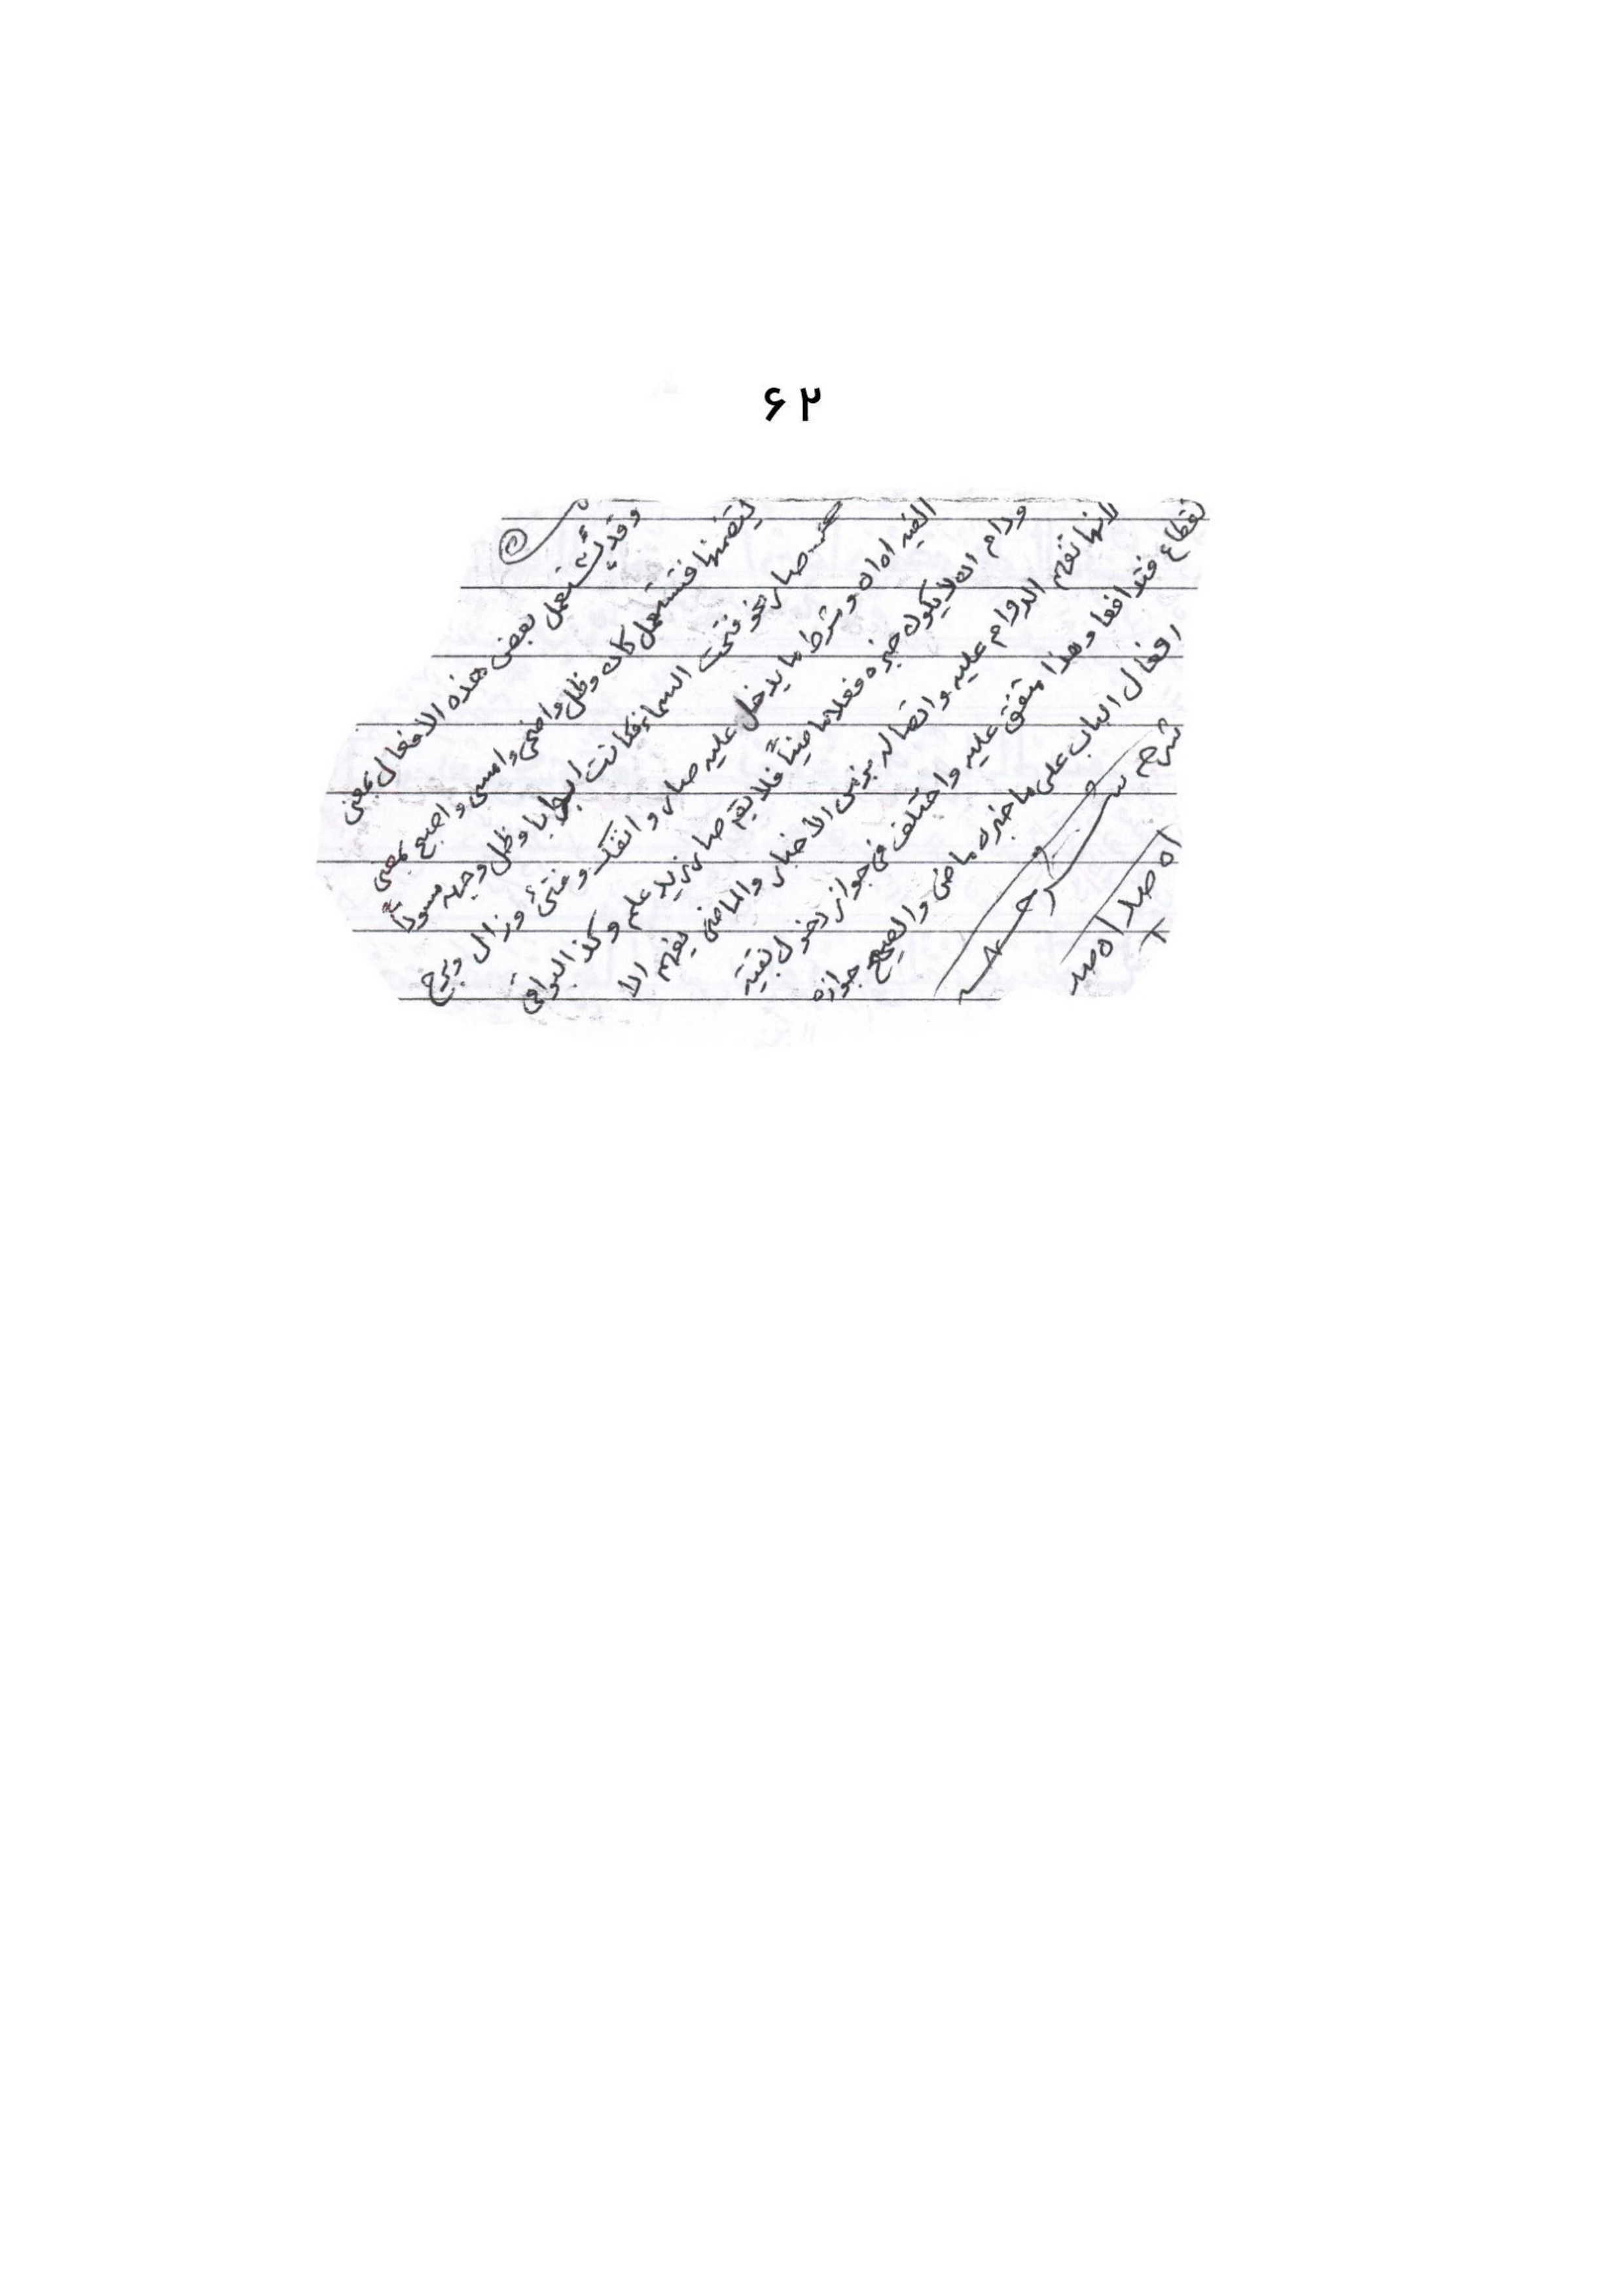 ۶۲
وقد يستعمل بعض هذه الافعال بمعنى
بعضها فتستعمل كان وظل واضحى وامسى واصبح بمعنى
صار نحو فتحت السماء فكانت ابوابا وظل وجهه مسودّاً
وشرط ما يدخل عليه صار وانفك وفتئ وزال وبرح
ودام ان لا يكون خبره فعلا ماضياً فلا يقم صار زيد علم وكذا البواقى
لانها تفهم الدوام عليه واتصاله بزمن الأخبار والماضى يفهم الا
نقطاع فتدافعا وهذا متفق عليه واختلف فى جواز دخول بقية
افعال الباب على ما خبره ماضى والصحيح جوازه
شرح